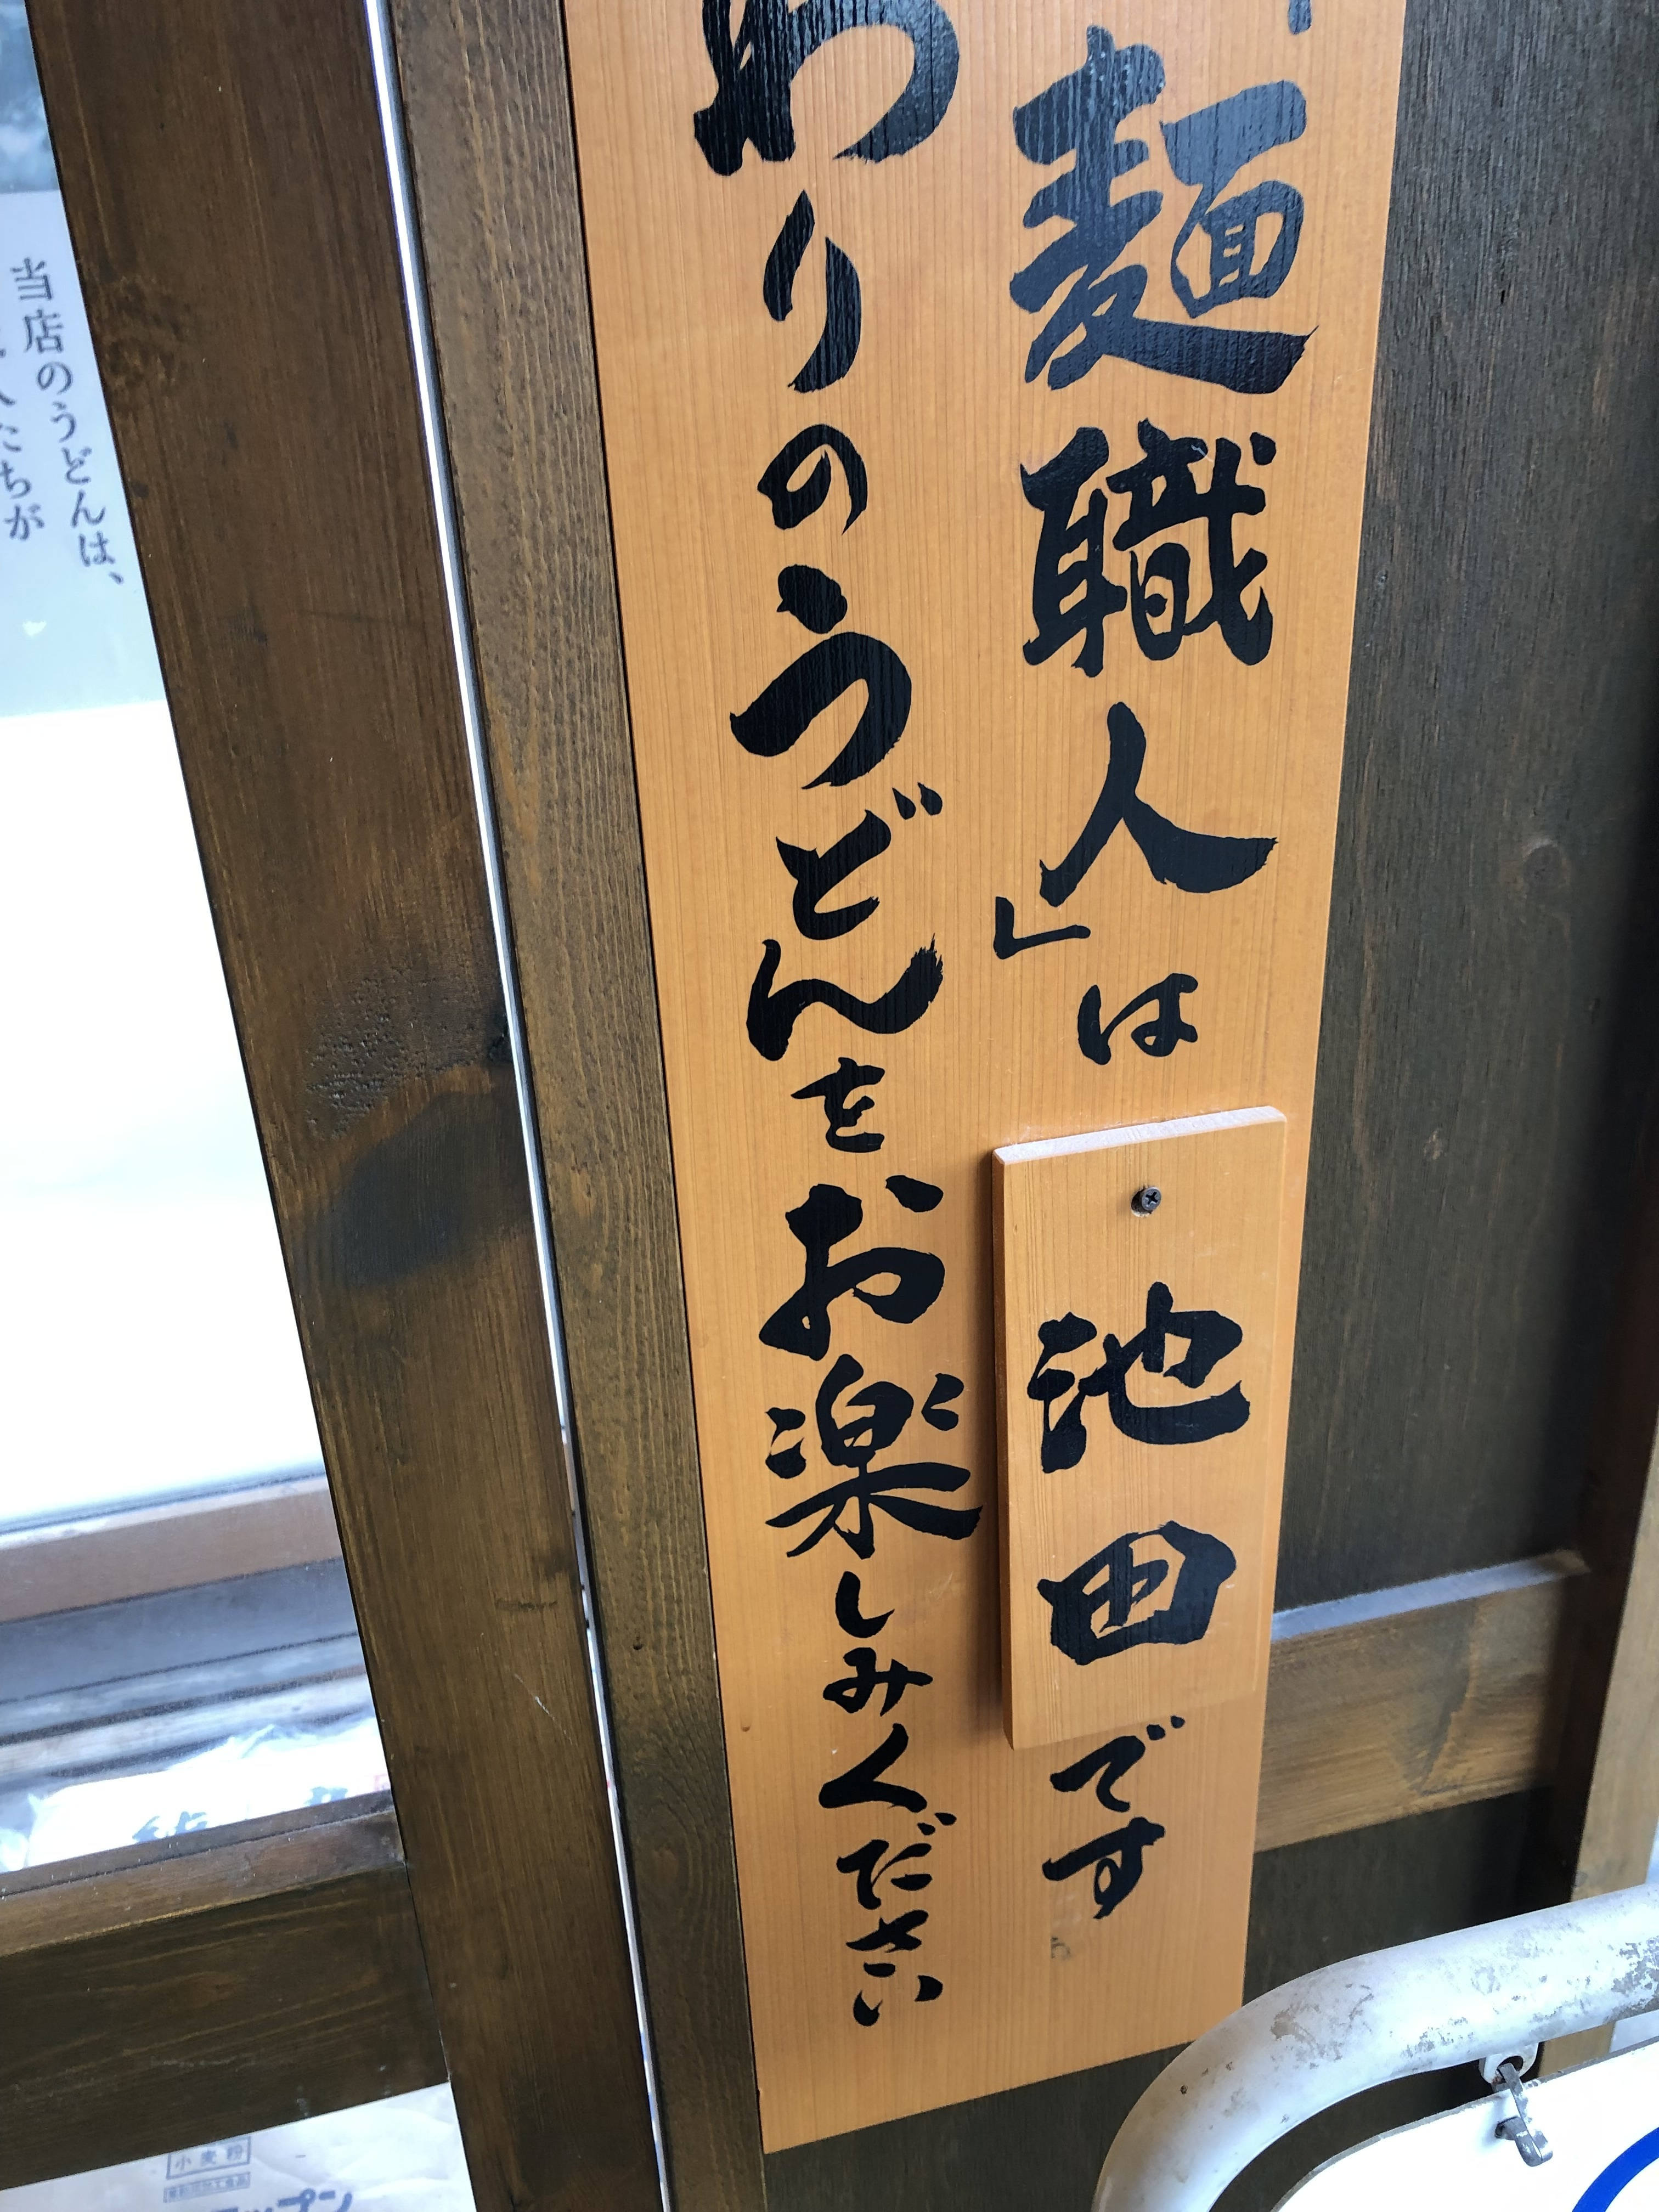 麺職人」は
池田
です
わりのうどんをお楽しみください
当店のうどんは、
たちが
小麦粉